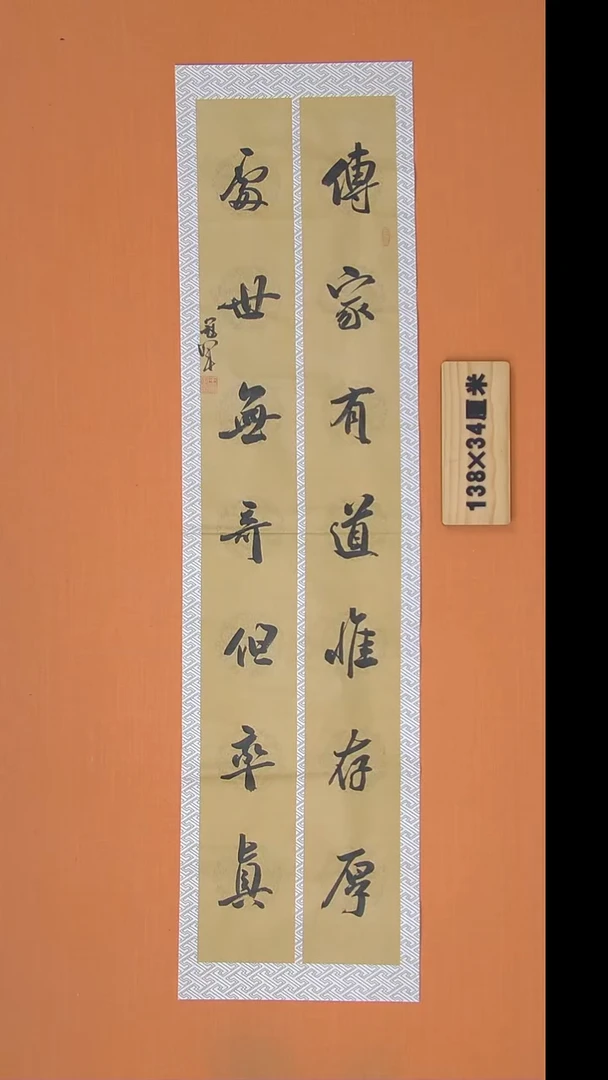 傳家有道惟存厚
處世無奇但率真
138×34厘米